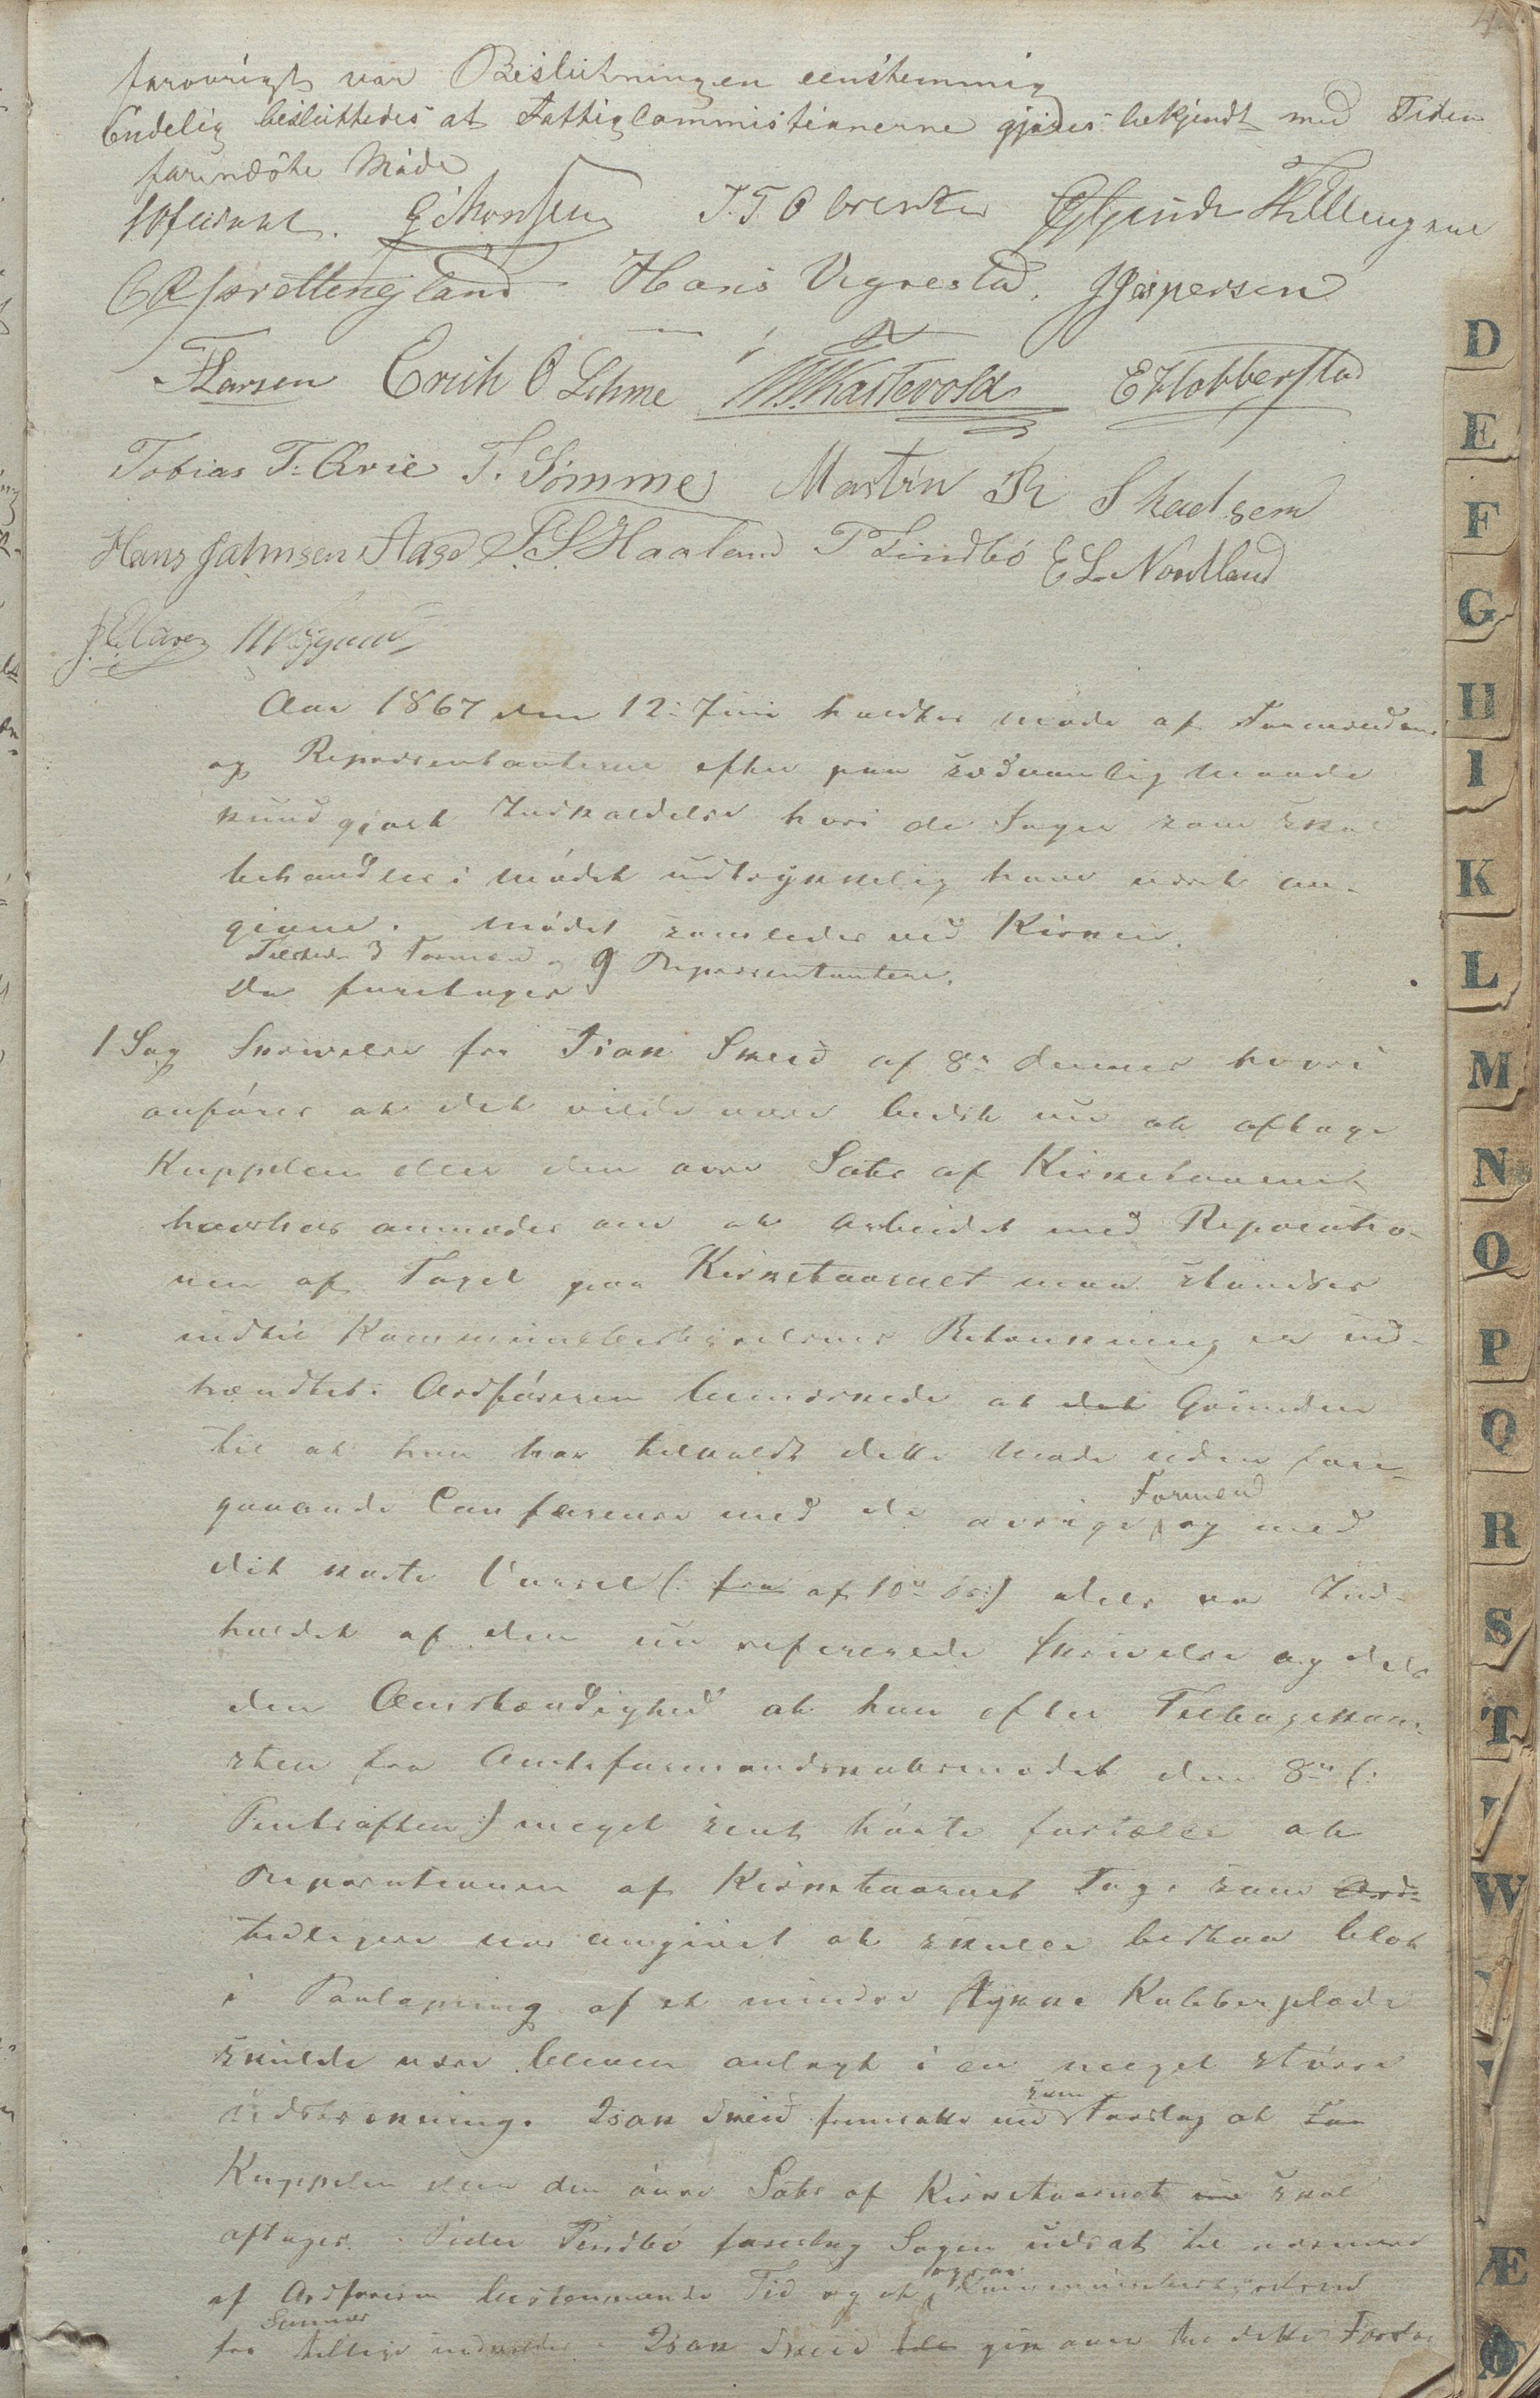 forøvrigt var Beslutningen eenstemmig
Endelig besluttedes at Fattigcommissionerne gjøres bekjendt med Tiden
for næste Møde
G Monsen T. T. Obrestad
Hans Vigrestad. J Jespersen
T Larsen Erich O Lihme E Hobberstad
Tobias T: Qvie T. Sømme Martin R Skadsem
Hans Jahnsen Aase S. S. Haaland P Lindbó E L. Nordland
Aar 1867 den 12: Juni holdtes Møde af Formænderne
og Repræsentanterne efter paa sædvanlig Maade
kundgjort Indkaldelse hvori de Sager som skal
behandles i Mødet udtrykkelig have været an-
givne. Mødet samledes ved Kirken.
Tilstede 3 Formænd og 9 Repræsentantere.
Da foretages
1 Sag Skrivelse fra Isak Skeid af 8de dennes hvori
anføres at det vilde være bedst nu at aftage
Kuppelen eller den øvre Sats af Kirketaarnet
hvorhos anmodes om at Arbeidet med Reparatio-
nen af Taget paa Kirketaarnet maa standses
indtil Kommunebestyrelsens Betænkning er ind-
hændtet. Ordføreren bemærkede at det Grunden
til at han har tilkaldt dette Møde uden fore-
gaaende Conference med de øvrige Formænd og med
det korte Varsel (: fra af 10de ds:) dels var Ind-
holdet af den nu refererede Skrivelse og dels
den Omstændighed at han efter Tilbagekom-
sten fra Amtsformandskabsmødet den 8de (:
Pintsaften:) meget sent hørte fortælle at
Reparationen af Kirketaarnets Tag, som Ord-
tidligere var angivet at skulle bestaa blot
i Paalapning af et mindre Stykke Kobberplade
skulde være bleven anlagt i en meget større
Udstrækning. Isak Skeid fremsatte nu som Forslag at
Kuppelen eller den øvre Sats af Kirketaarnet nu skal
aftages. Peder Lindbó foreslog Sagen udsat til nærmere
af Ordføreren bestemmende Tid og at ogsaa Kommunebestyrelsen
for Sunnes tillige indkaldes. Isak Skeid gik over til dette Forslag